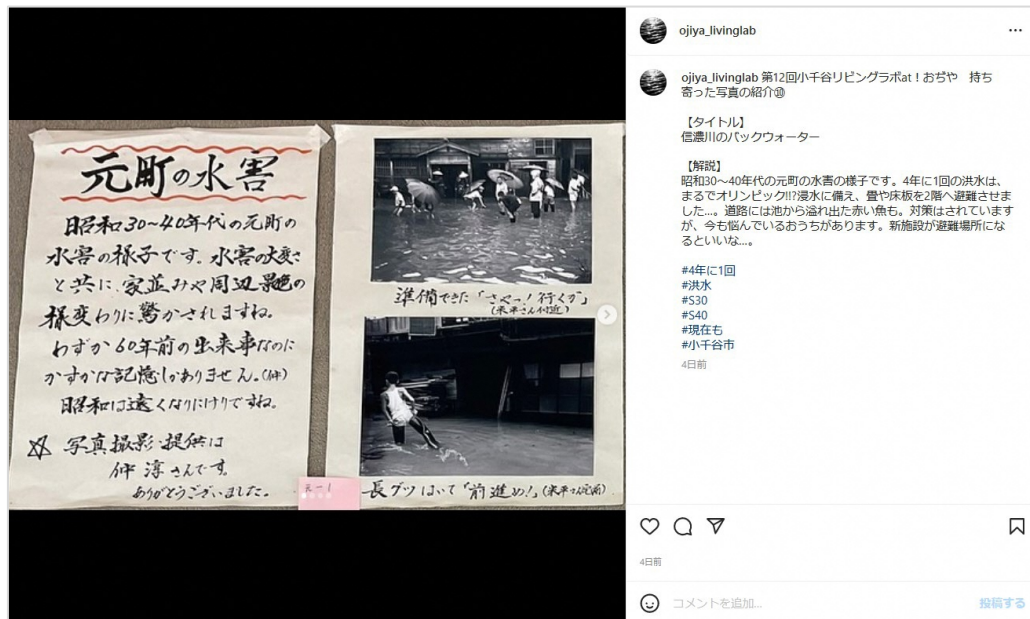 元町の水害
昭和30~40年代の元町の
水害の様子です。水害の大変さ
と共に、家並みや周辺景色の
様変わりに驚かされますね。
わずか60年前の出来事なのに
かすかな記憶しかありません。(仲)
昭和は遠くなりにけりですね。
☆ 写真撮影・提供は
仲 淳さんです。
ありがとうございました。
準備できた「さぁっ!行くか」
(米平さん付近)
元-1
長グツはいて「前進め!」(米平さん宅前)
ojiya_livinglab
ojiya_livinglab 第12回小千谷リビングラボat!おぢや 持ち
寄った写真の紹介⑩
【タイトル】
信濃川のバックウォーター
【解説】
昭和30~40年代の元町の水害の様子です。4年に1回の洪水は、
まるでオリンピック!!?浸水に備え、畳や床板を2階へ避難させま
した…。道路には池から溢れ出た赤い魚も。対策はされています
が、今も悩んでいるおうちがあります。新施設が避難場所にな
るといいな…。
#4年に1回
#洪水
#S30
#S40
#現在も
#小千谷市
4日前
4日前
コメントを追加...
投稿する